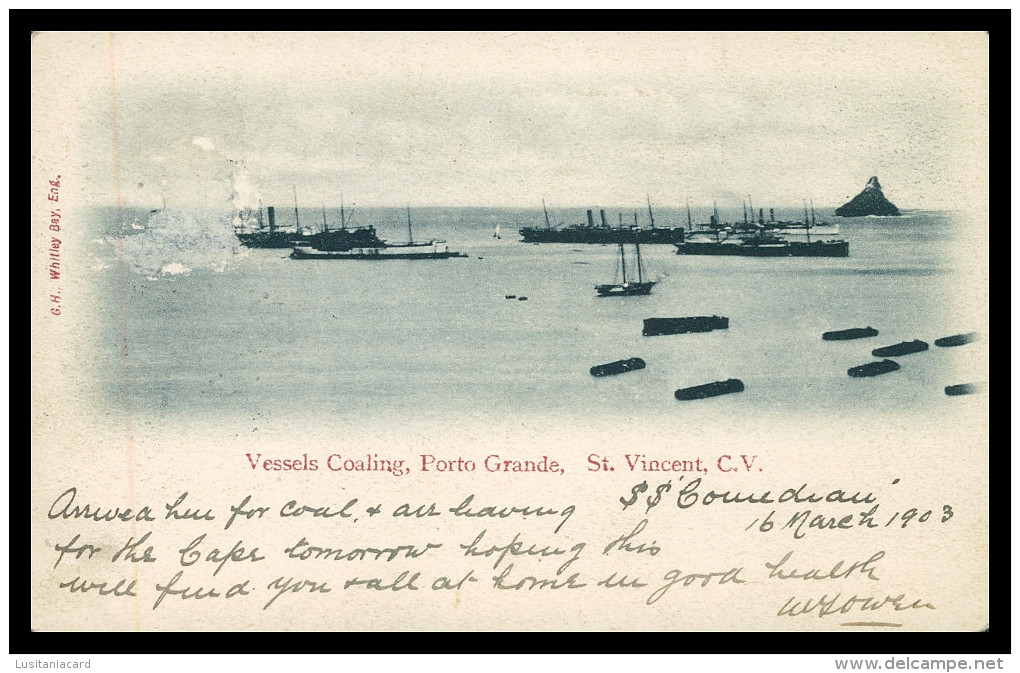 G.H., Whitley Bay, Eng.
Vessels Coaling, Porto Grande, St. Vincent, C.V.
SS "Comedian"
16 March 1903
Arrived here for coal, & are leaving
for the Cape tomorrow hoping this
will find you & all at home in good health
Lusitaniacard
www.delcampe.net